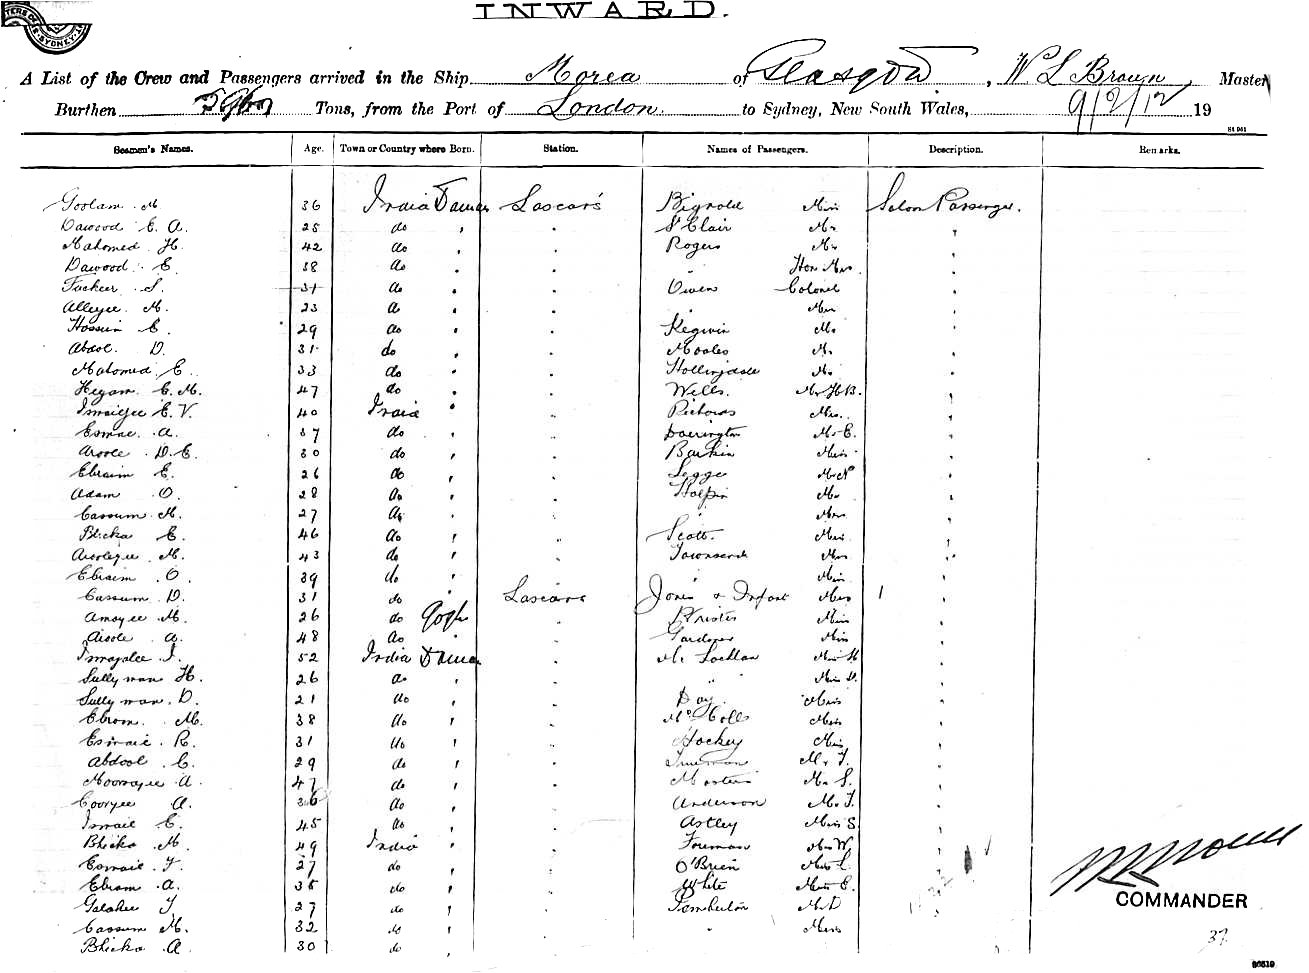 INWARD.
A List of the Crew and Passengers arrived in the Ship Morea of Glasgow, W L Brown Master
Burthen Tons, from the Port of London to Sydney, New South Wales, 9/2/12 19
Seamen's Names. Age. Town or Country where Born. Station. Names of Passengers. Description. Remarks.
Goolam M 36 India Daman Lascars Bignold Miss Salon Passenger.
Dawood E. A. 25 do " " St Clair Mr "
Mahomed H. 42 do " " Rogers Mr "
Dawood E. 38 do " " " Hon Mrs "
Fucker S. 31 do " " Owen Colonel "
Alleyee M. 23 do " " " Mrs "
Hossein E. 29 do " " Kegwin Mr "
Abdol D. 31 do " " Moales Mr "
Mahomed E. 33 do " " Hollingdale Mr "
Hegam E. M. 47 do " " Wells. Mr H B. "
Ismailjee E. V. 40 India " " Richards Mrs. "
Esmae A. 37 do " " Dorrington Mr E. "
D. E. 30 do " " Barkin Miss "
Ebraim E. 26 do " " Legge Mr N "
Adam O. 28 do " " Halpin Mr "
Cassum M. 27 do " " " Mrs "
Bhicka E. 46 do " " Scott Miss "
M. 43 do " " Townsend Mrs "
Ebraim O. 39 do " " " Miss "
Cassum D. 31 do " Lascars Jones & Infant Mrs 1 "
Amoyee M. 26 do Gogh " Miss "
A. 48 do " Gardner Miss "
Ismaglee I. 52 India Daman " Mc Lachlan Miss H "
Sullyman H. 26 do " " " Miss D. "
Sullyman D. 21 do " " Day Miss "
Ebrom M. 38 do " " Miss "
Esmail R. 31 do " " Hockey Miss "
Abdool E. 29 do " " Mr F. "
Moorajee A. 47 do " " Masters Mr S. "
Coorjee A. 36 do " " Anderson Mr F. "
Ismail E. 45 do " " Astley Miss S "
Bhicka M. 49 India " " Foreman Mrs W. "
Esmail F. 27 do " " O'Brien Miss L. "
Ebram A. 35 do " " White Miss E. "
F 27 do " " Pemberton Mr D "
Cassum M. 32 do " " " Mrs
Bhicka A. 30 do
COMMANDER
37